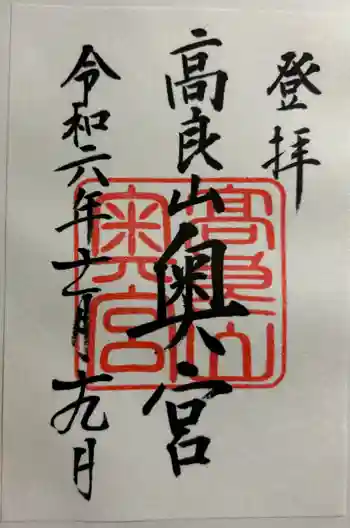 登拝
高良山奧宮
令和六年十一月十九日
高良山
奥宮